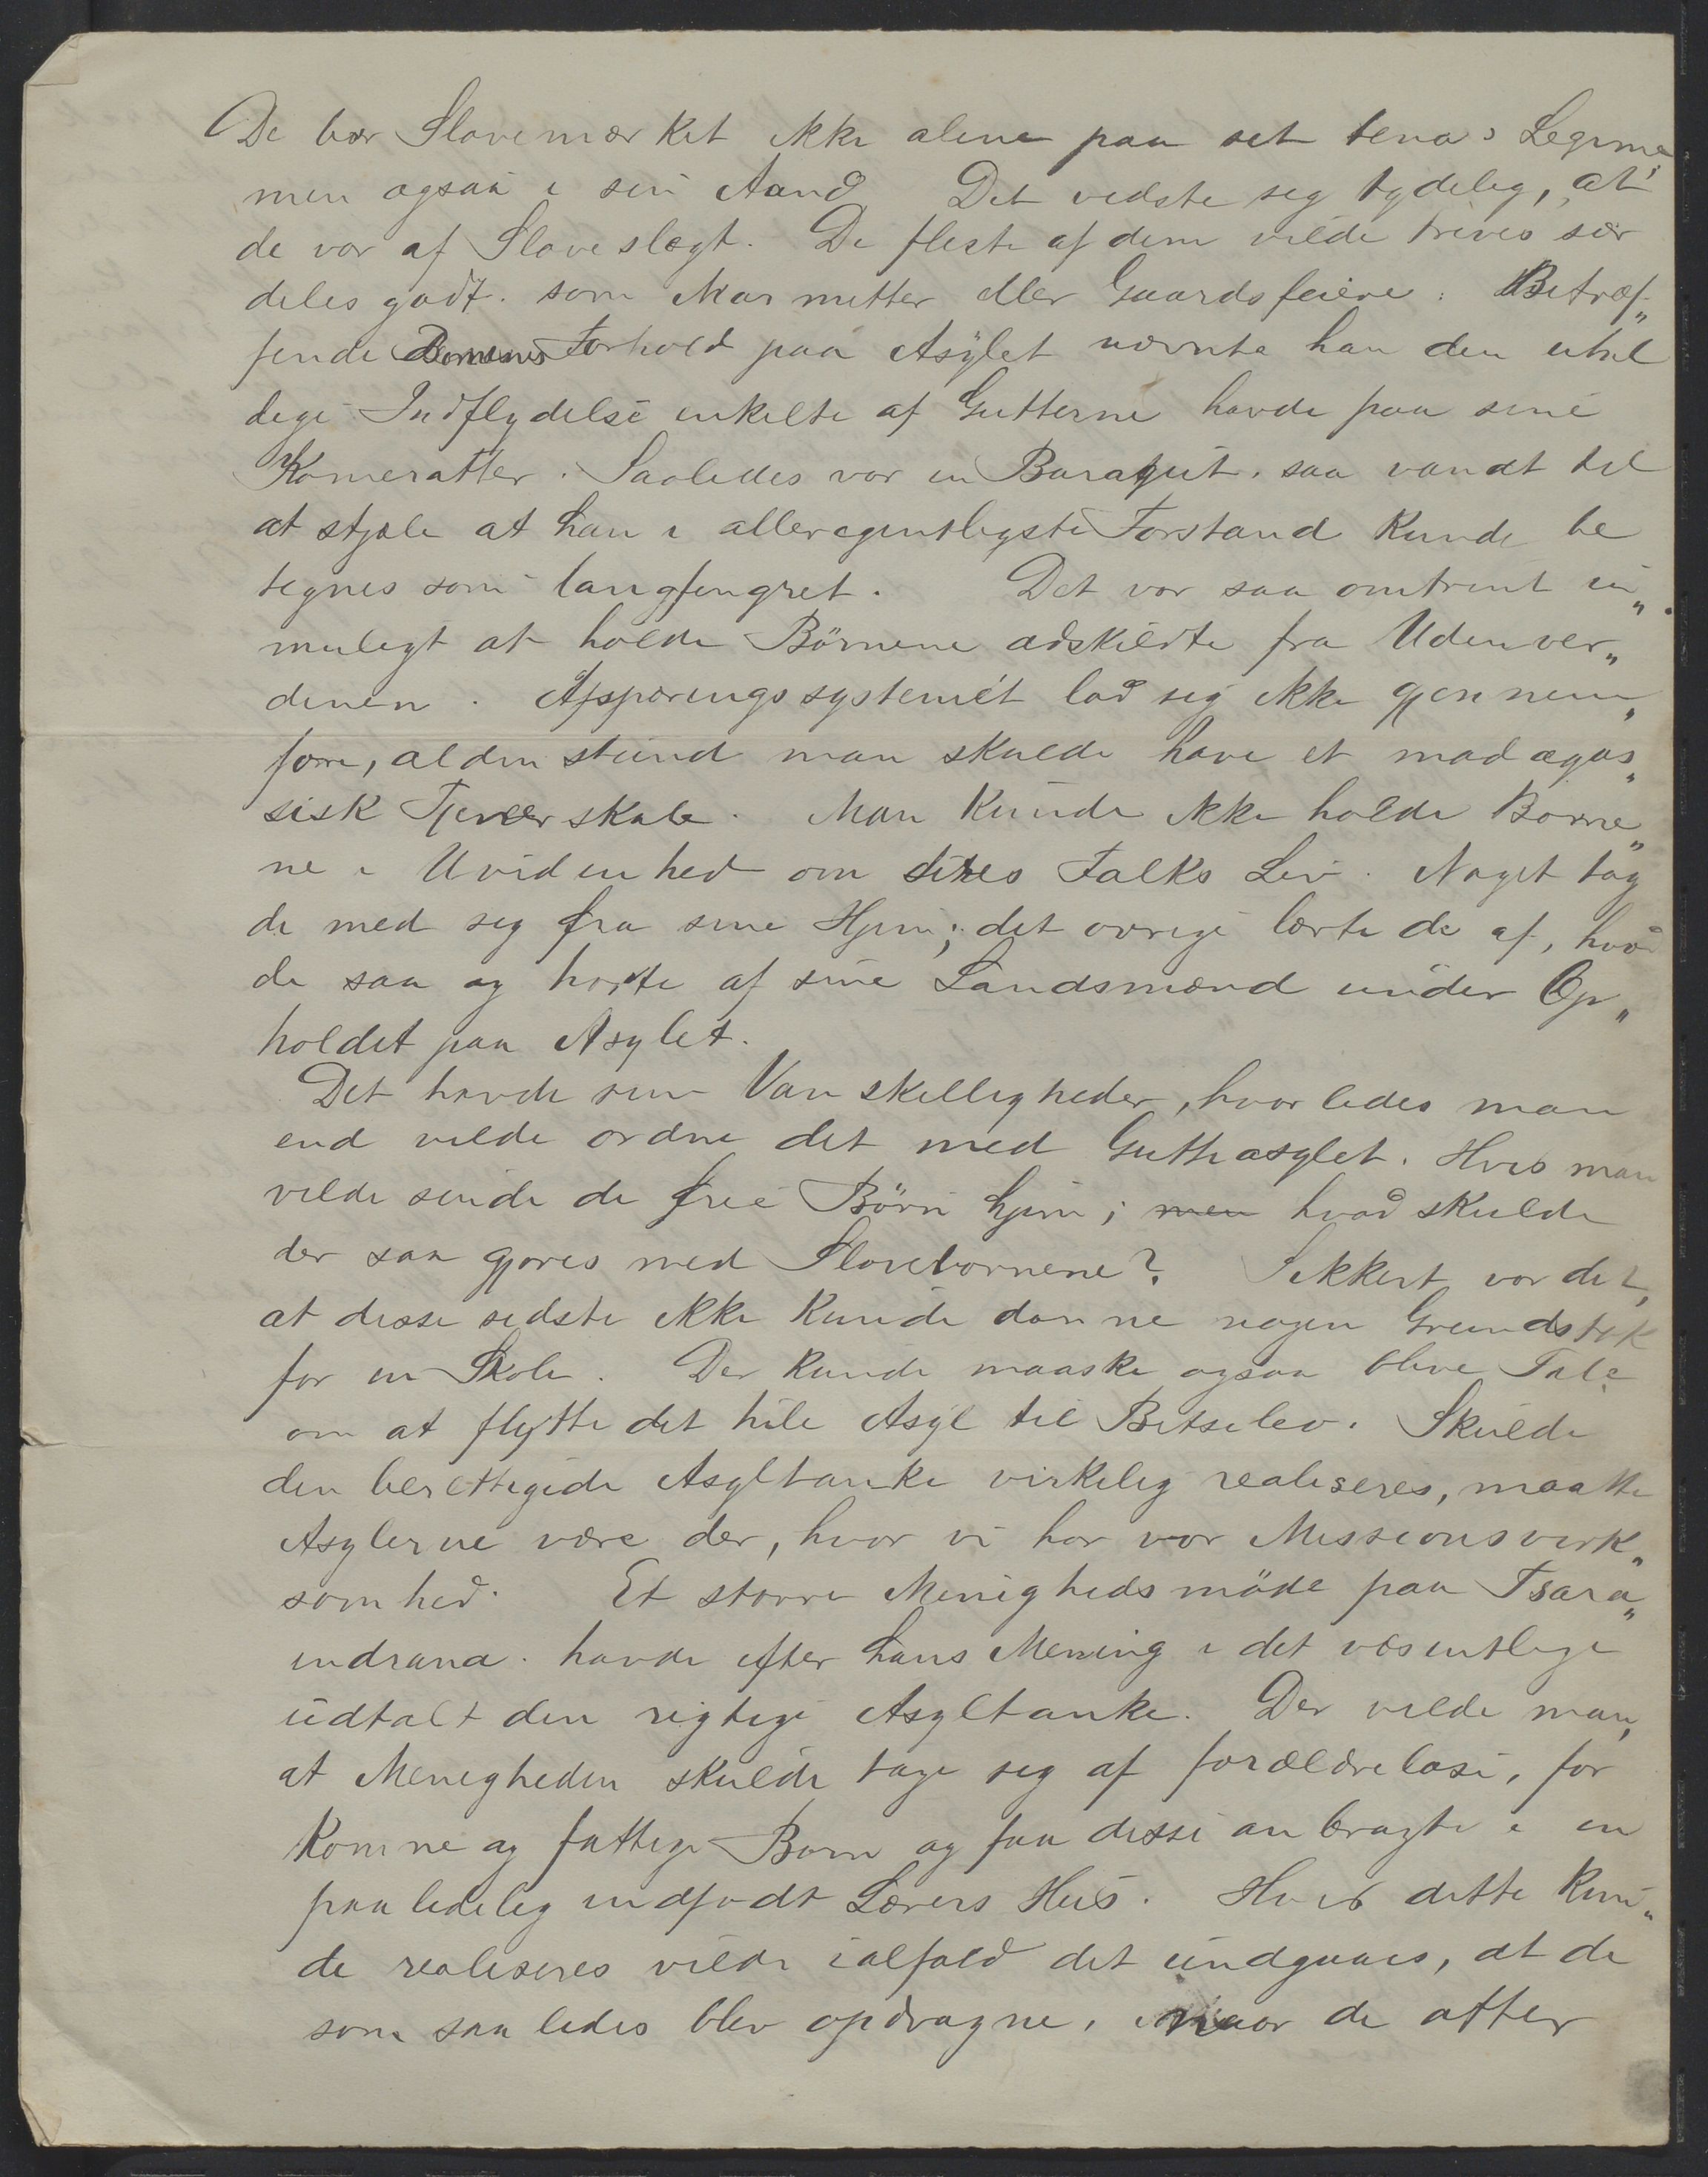 De bær Slavemærket ikke alene paa sit Legeme
men ogsaa i sin Aand. Det vidste seg tydelig, at
de var af Slaveslægt. De fleste af dem vilde trives sær
deles godt som Marmitter eller Gaardsfeiere. Betræf„
fende Børnenes Forhold paa Asylet nævnte han den uhel
dige Indflydelse enkelte af Gutterne havde paa sine
Kameratter. Saaledes var en Baragut saa vandt til
at stjæle at han i alleregentligste Forstand kunde be
tegnes som langfingret. Det var saa omtrent u„
muligt at holde Börnene adskildte fra Udenver„
denen. Afspæringssystemet lod sig ikke gjennem„
føre, alden stund man skulde have et madagas„
sisk Tjenerskab. Man kunde ikke holde Børne„
ne i Uvidenhed om sites Folks Liv. Noget tog
de med seg fra sine Hjem; det øvrige lærte de af, hvad
de saa og hørte af sine Landsmænd under Op„
holdet paa Asylet.
Det havde sine Vanskelligheder, hvorledes man
end vilde ordne det med Gutteasylet. Hvis man
vilde sende de frie Börn hjem; men hvad skulde
der saa gjøres med Slavebørnene? Sikkert var det,
at disse sidste ikke kunde danne nogen Grundstok
for en Skole. Der kunde maaske ogsaa blive Tale
om at flytte det hele Asyl til Betsileo. Skulde
den berettigede Asyltanke virkelig realiseres, maatte
Asylerne være der, hvor vi har vor Missionsvirk„
somhed. Et større Menighedsmöde paa Tsara„
indrana havde efter hans Mening i det væsentlige
udtalt den rigtige Asyltanke. Der vilde man,
at Menigheden skulde tage seg af forældreløse, for
komne og fattige Børn og faa disse anbragte i en
paalidelig indfødt Lærers Hus. Hvis dette kun„
de realiseres vilde ialfald det undgaaes, at de
som saaledes blev opdragne, naar de atter